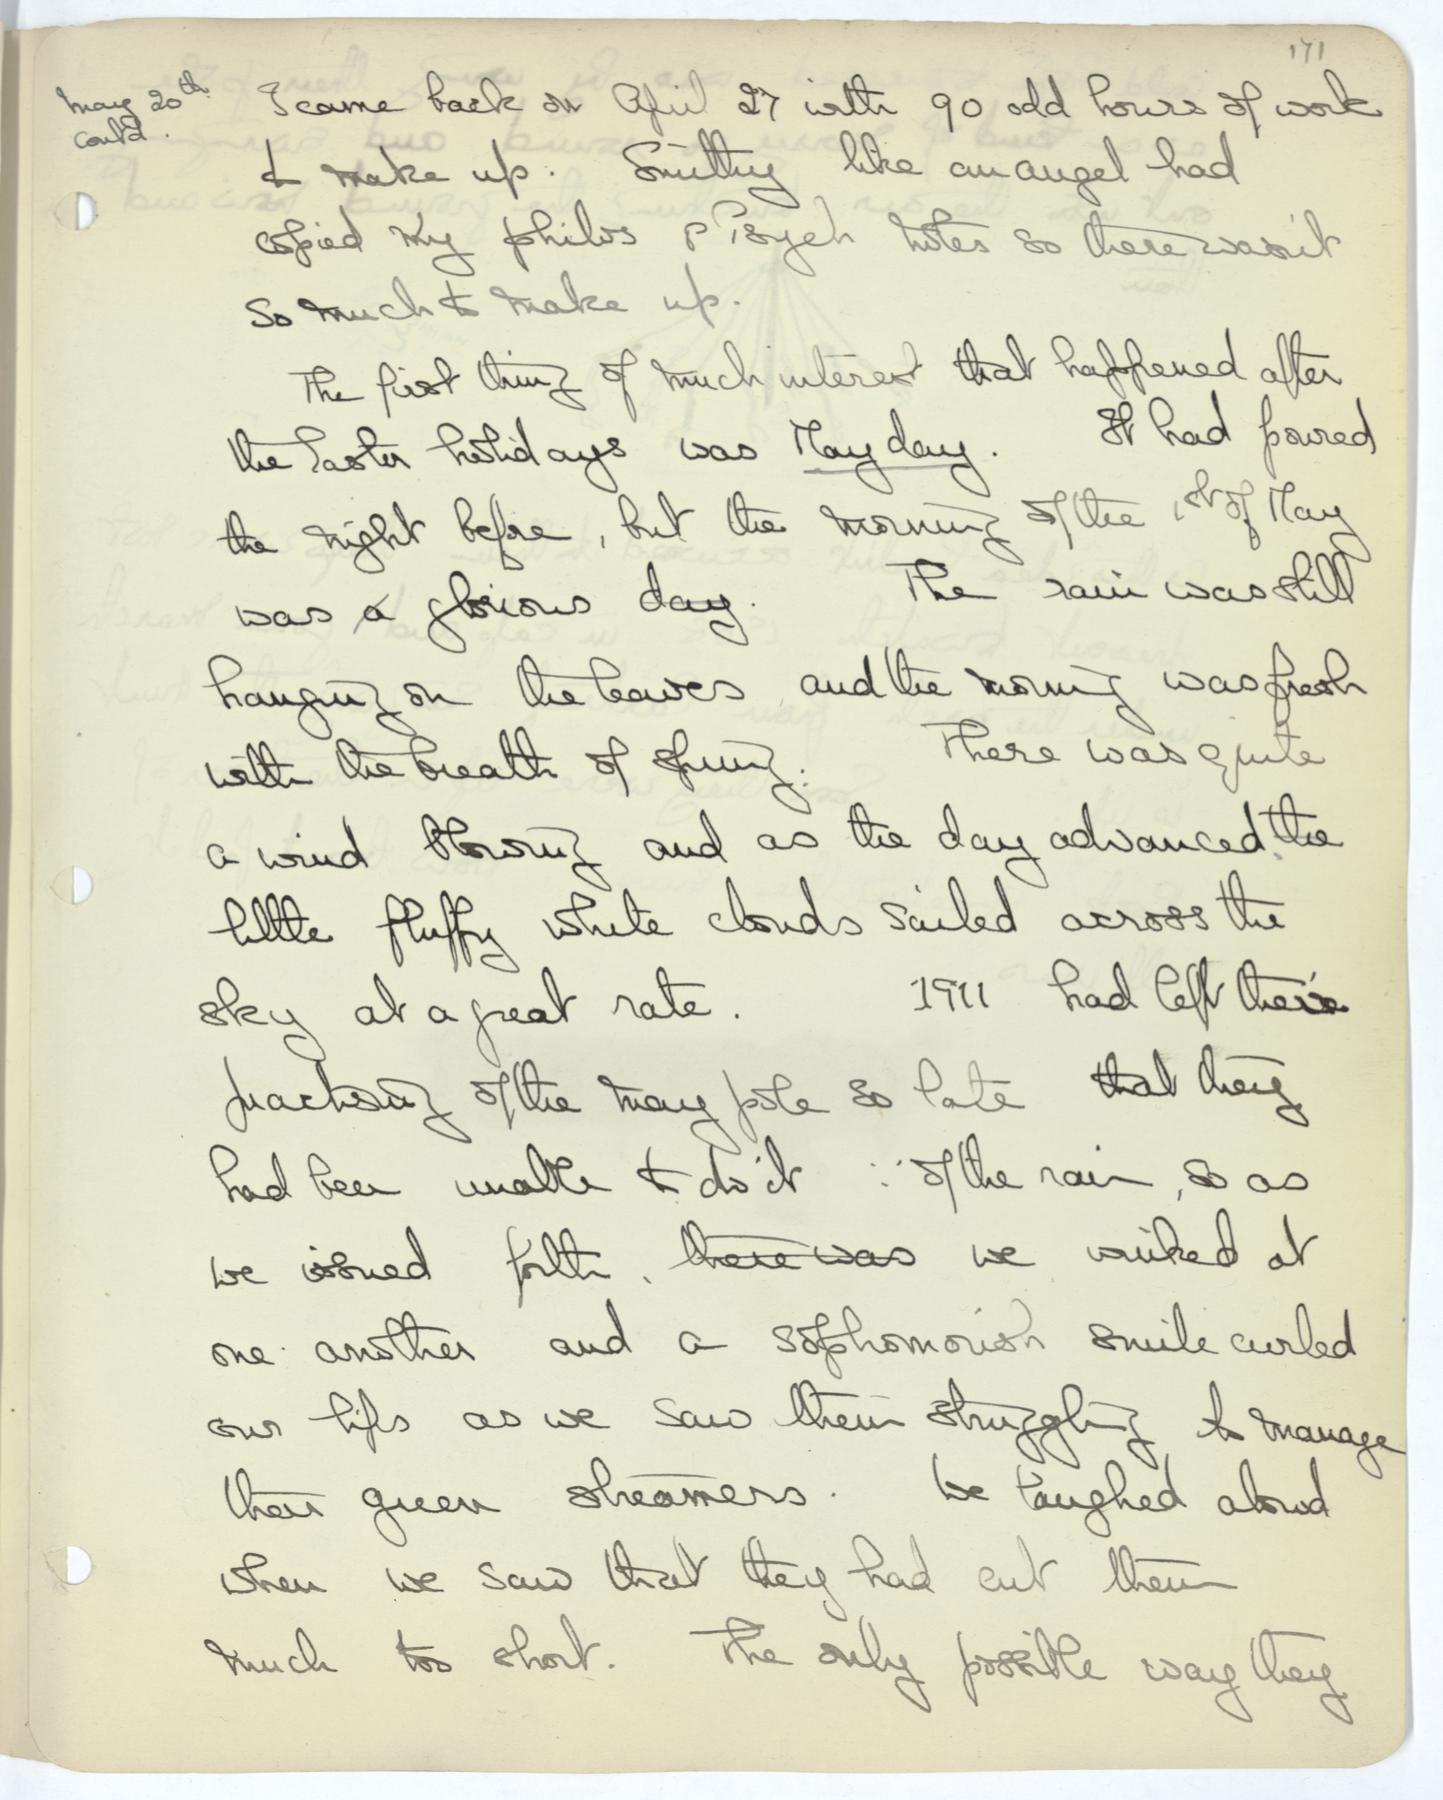 171
May 20th
cont'd.
I came back on April 27 with 90 odd hours of work
to make up. Smithy like an angel had
copied my philos & Psych notes so there wasn't
so much to make up.
The first thing of much interest that happened after
the Easter holidays was May day. It had poured
the night before, but the morning of the 1st of May
was a glorious day. The rain was still
hanging on the leaves and the morning was fresh
with the breath of spring. There was quite
a wind blowing and as the day advanced the
little fluffy white clouds sailed across the
sky at a great rate. 1911 had left their
practising of the May pole so late that they
had been unable to do it ∵ of the rain, so as
we issued forth, there was we winked at
one another and a sophomorish smile curled
our lips as we saw them struggling to manage
their green streamers. We laughed aloud
when we saw that they had cut them
much too short. The only possible way they